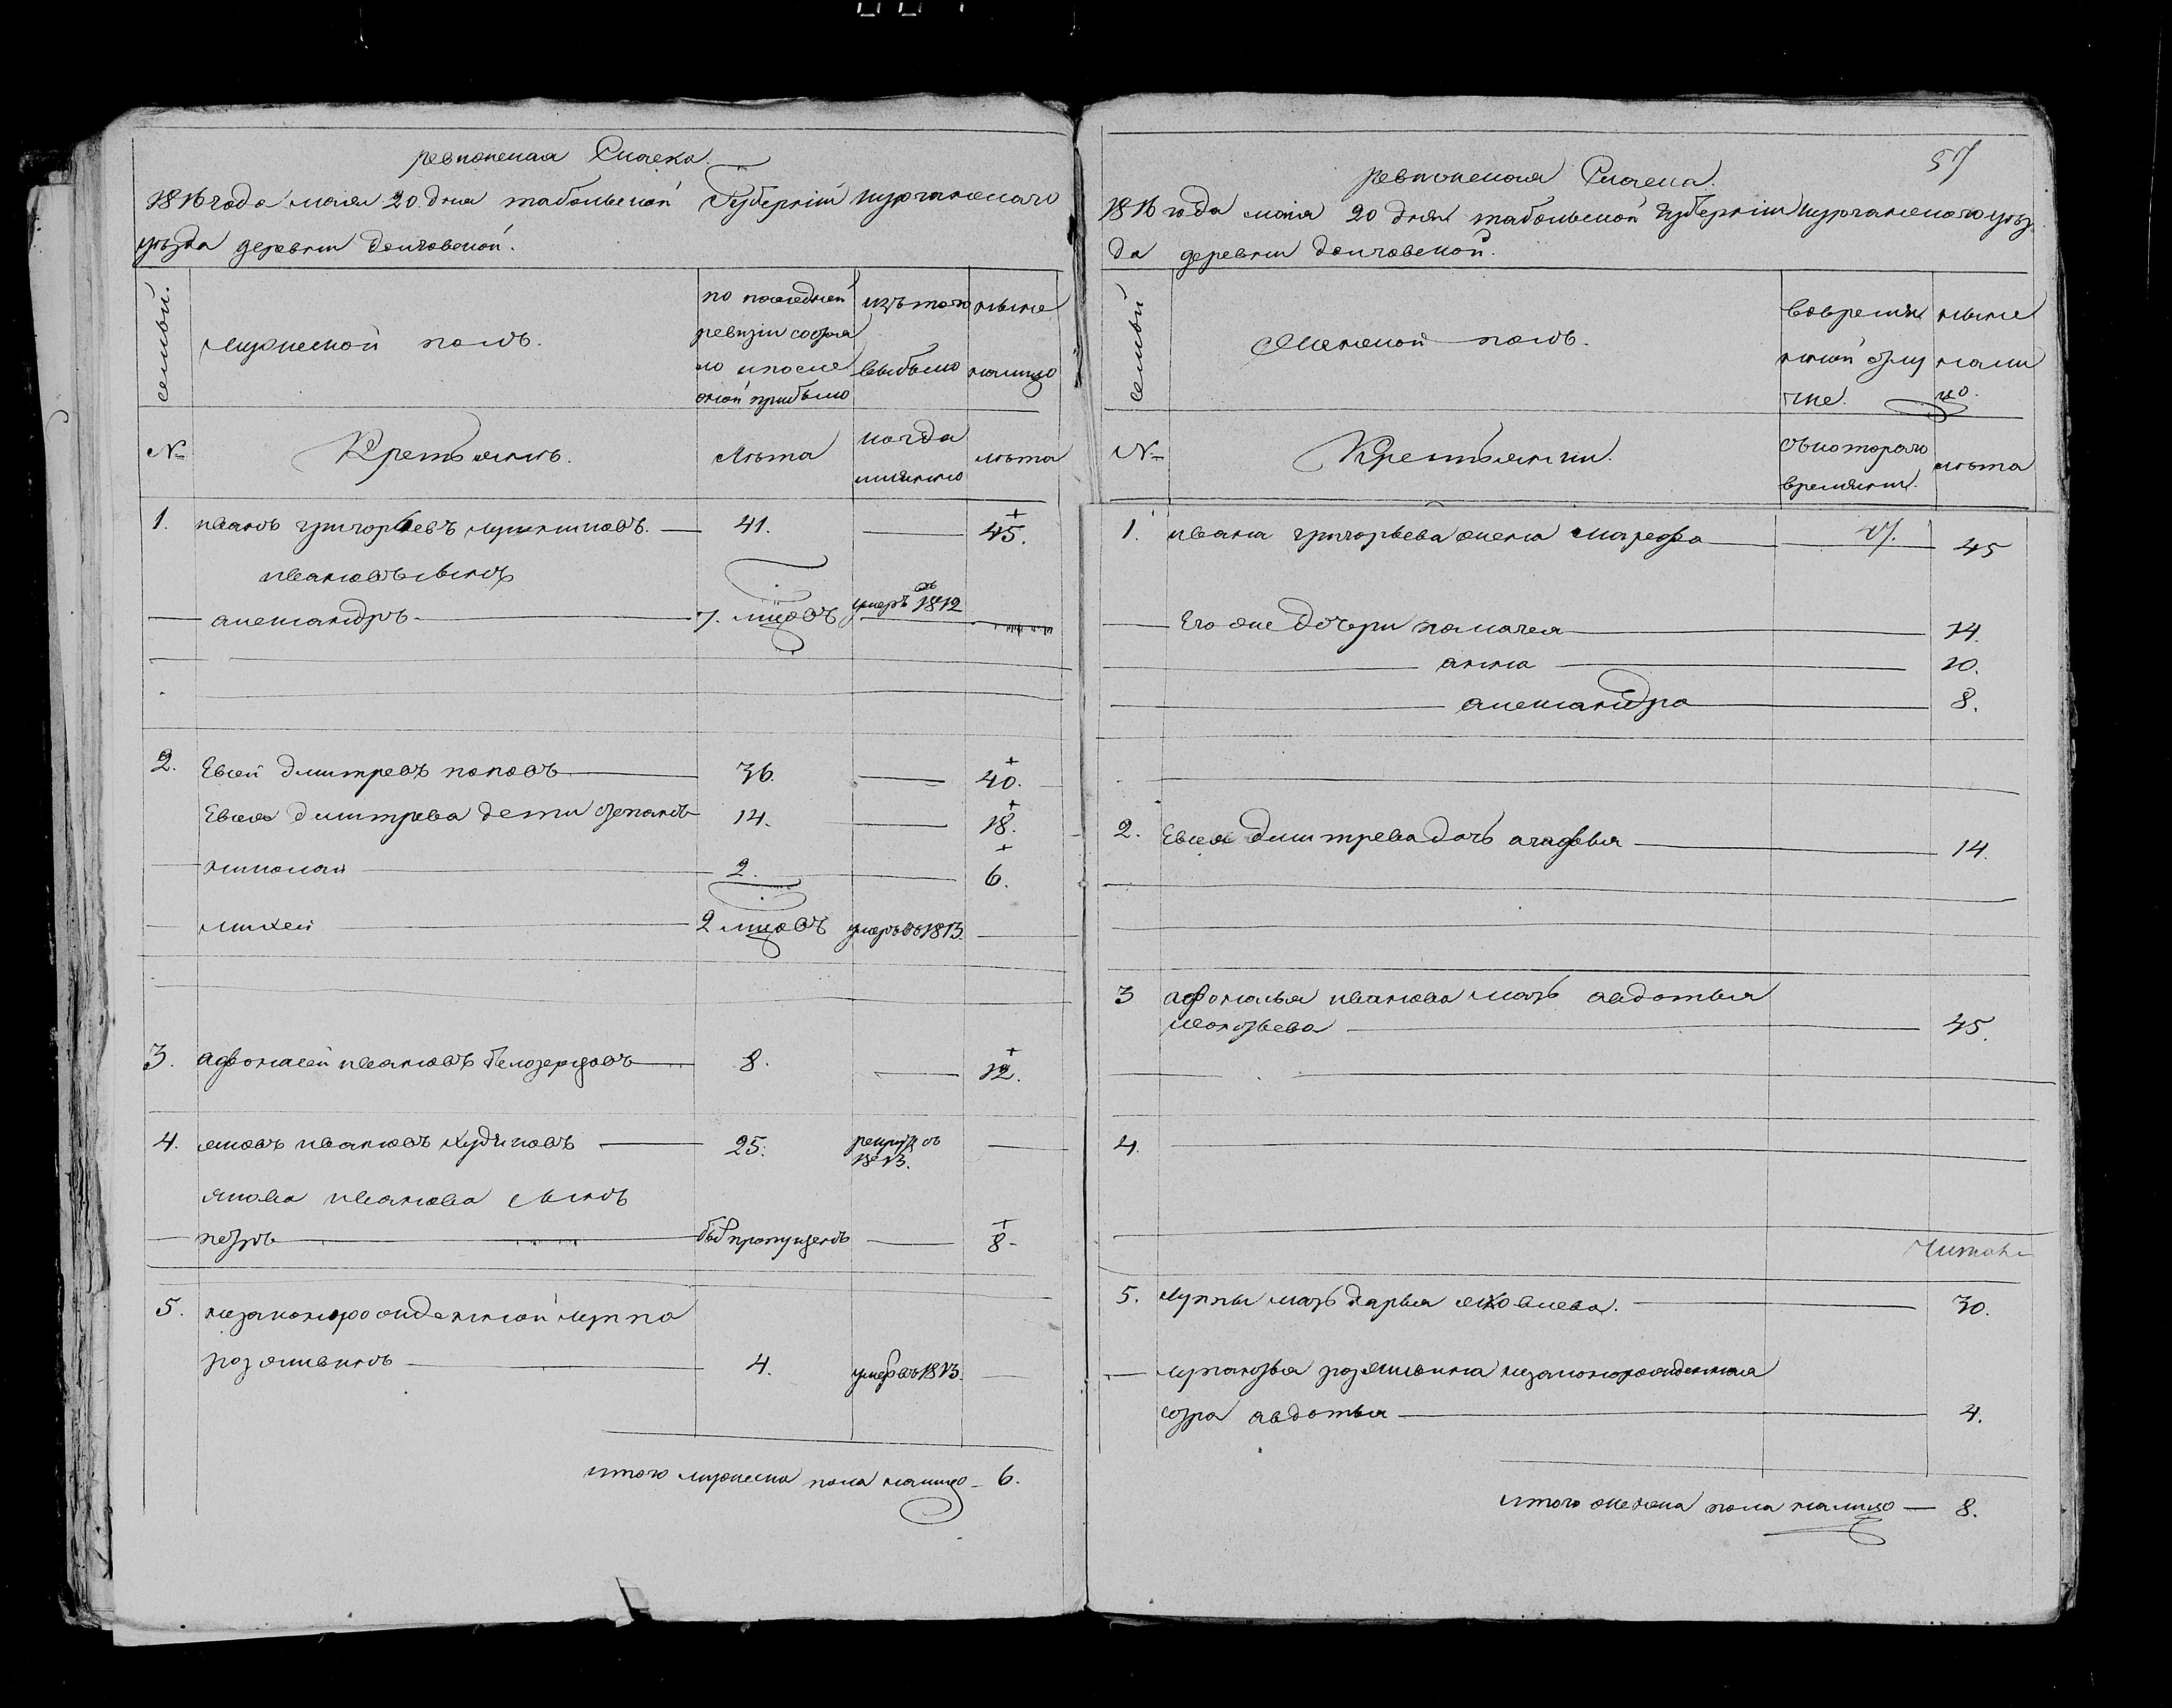 ревизская Сказка
1816 года маия 20 дня табольской Губернiи курганскаго
уезда деревни долговской.
семьи.
мужеской полъ.
по последней
ревизiи состоя
ло и после
оной прибыло
изъ того
выбыло
ныне
налицо
№
Крестьянъ.
лѣта
когда
имянно
лѣта
1. иванъ григорьевъ 41. 45.
ивановъ сынъ
александръ 7. мцовъ умеръ въ 1812
2. Евсей дмитревъ поповъ 36. 40.
Евсея дмитрева дети степанъ 14. 18.
николай 2. 6.
михей 2 мцовъ умеръ въ 1813.
3. афонасей ивановъ белозерцовъ 8. 12.
4. яковъ ивановъ худяковъ 25. рекрутъ въ
1813.
якова иванова сынъ
петръ был пропущенъ 8.
5. незаконорожденной луппа
4. умеръ въ 1813.
итого мужеска пола налицо 6.
57
ревизская Сказка.
1816 года маия 20 дня табольской губернiи курганского уез
да деревни долговской.
семьи
Женской полъ.
во времян
ной отлу
чке.
ныне
нали
цо.
№
Крестьянки.
съ котораго
времяни.
лѣта
1. ивана григорьева жена марефа 45
Его же дочери палагея 14.
анна 10.
александра 8.
2. Евсея дмитрева дочь агафья 14.
3 афонасья иванова мать авдотья
45.
4.
Читалъ
5. луппы мать дарья яковлева. 30.
незаконорожденная
сестра авдотья 4.
итого женска пола налицо 8.